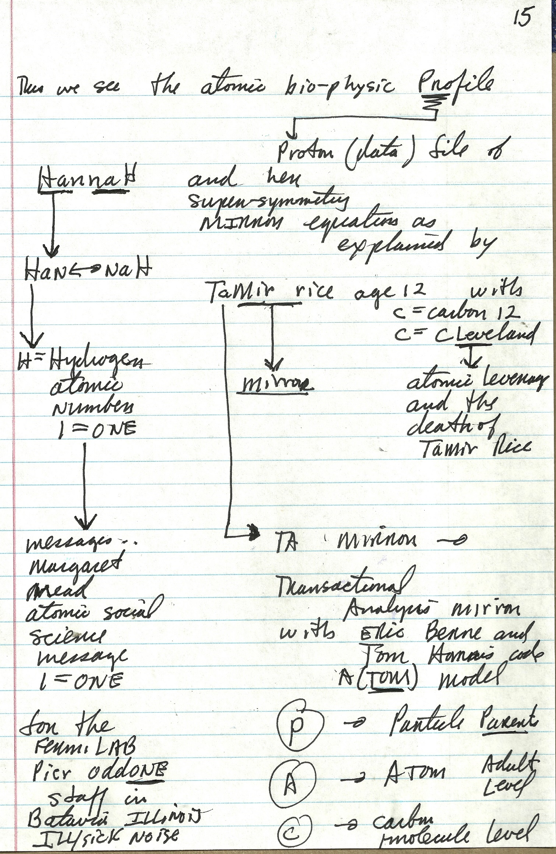 15
Thus we see the atomic bio-physic Profile
Proton (data) file of
HannaH and her
super-symmetry
MIRROR equation as
explained by
HaN↔NaH
TaMir rice age 12 with
C = carbon 12
C = CLeveland
H = Hydrogen
atomic
Number
1 = ONE
mirror
atomic leverage
and the
death of
Tamir Rice
messages..
Margaret
Mead
atomic social
science
message
1 = ONE
TA mirror →
Transactional
Analysis mirror
with Eric Berne and
Tom Harris code
A(TOM) model
for the
Fermi LAB
Pier OddONE
staff in
Batavia ILLINOIS
ILL/sick NOISE
P → Particle Parent
A → ATOM Adult
Level
C → carbon
molecule level